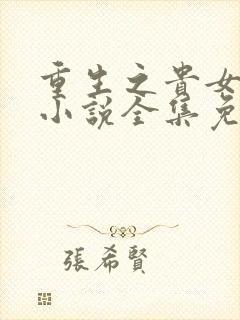 重生之貴女
小說全集免
張希賢